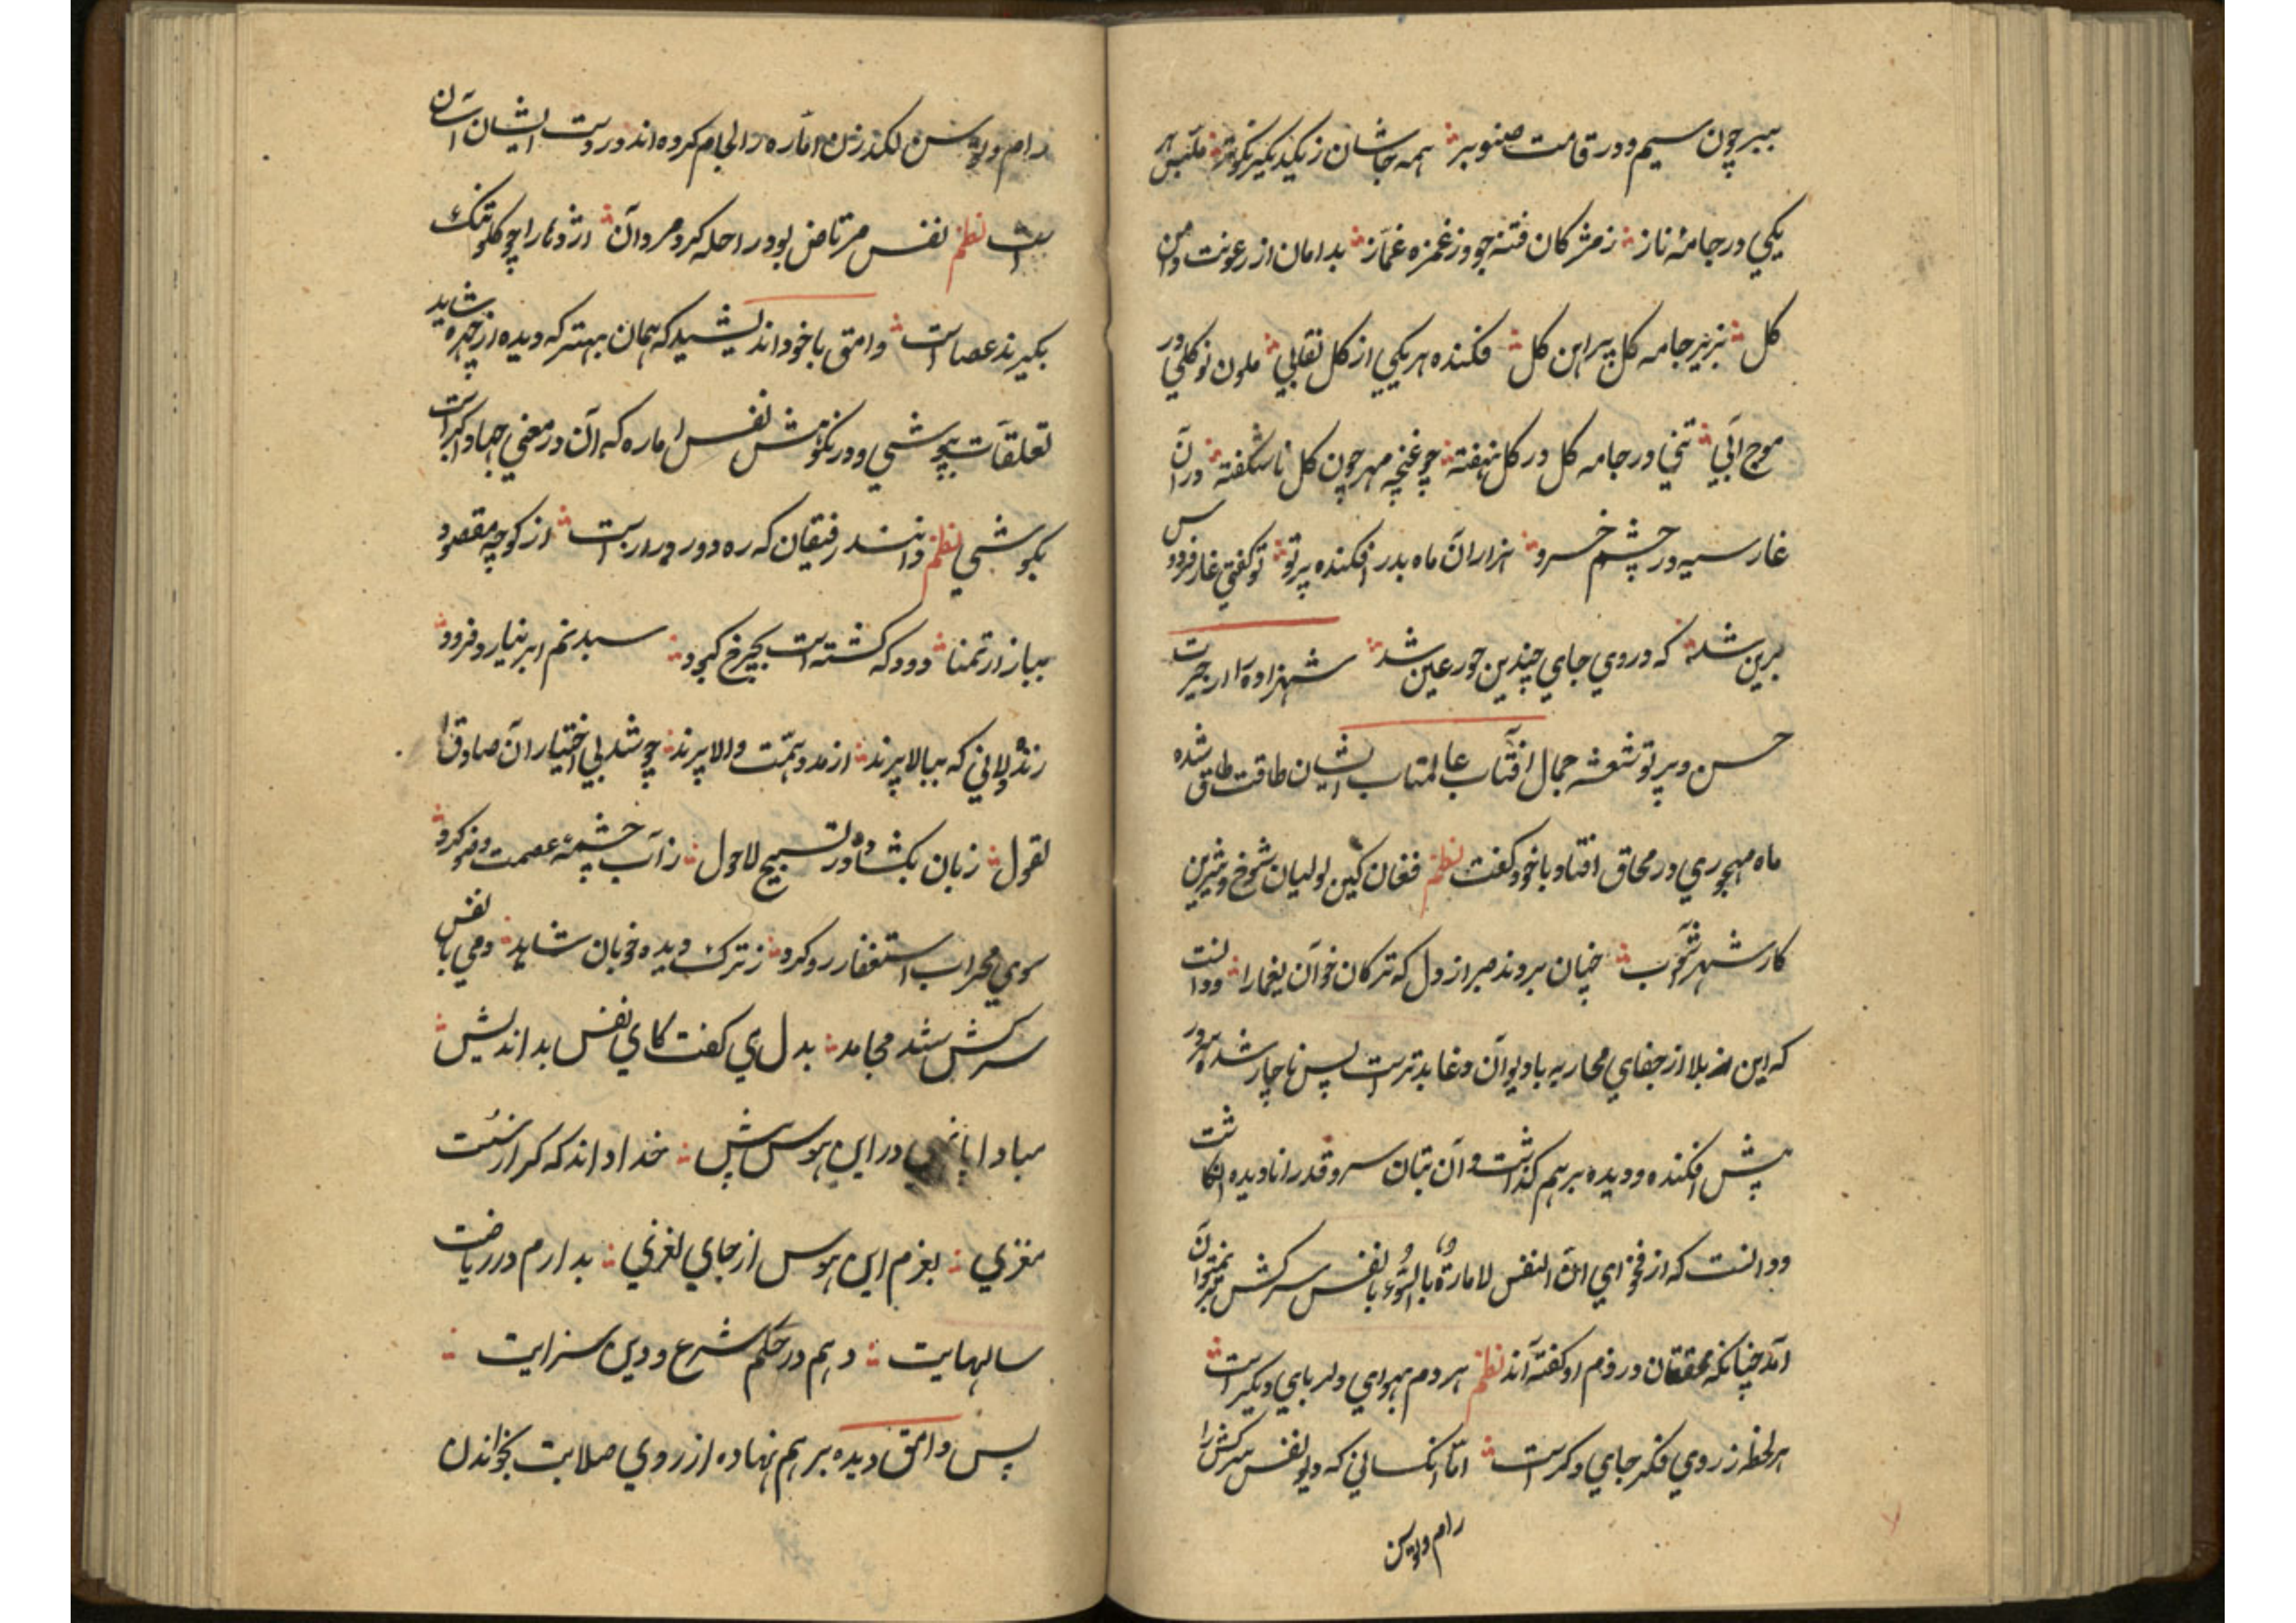 ببر چون سیم و در قامت صنوبر همه جاشان ز یکدیگر نکوتر ملبس هر
یکی در جامهٔ ناز ز مژکان فتنه جو وز غمزه غماز بدامان از رعونت دامن
کل بزیر جامه کل پیراهن کل فکنده هر یکی از کل نقابی ملون نو کلی در
موج آبی تنی در جامه کل در کل نهفته چو غنچه مهر چون کل ناشکفته در آن
غار سیه در چشم خسرو هزاران ماه بدر افکنده پرتو تو کفتی غار فردوس
برین شد که در وی جای چندین حور عین شد شهزاده را از حیرت
حسن و پرتو شعشه جمال آفتاب عالمتاب ایشان طاقت طاق شده
ماه مهجوری در محاق افتاد با خود کفت نظم فغان کین لولیان شوخ و شیرین
کار شهر آشوب چنان بردند صبر از دل که ترکان خوان یغما را و دانست
که این بلا از جفای محاربه با دیوان دغا بدترست پس ناچار شده سر در
پیش افکنده و دیده بر هم کذاشت و آن بتان سرو قد را نادیده انکاشت
و دانست که از فحوای ان النفس لامارة بالسوء با نفس سرکش بر نمیتوان
آمد چنانکه محققان در ذم او کفته اند نظم هر دم بهوای دلربای دیکرست
هر لحظه ز روی فکر جای دکرست اما آنکسانی که دیو نفس سرکش را
رام و لوسن
رام و لوسن لکدزن اماره را لجام کرده اند در دست ایشان آسان
است نظم نفس مرتاض بود راحله کرد مردان اژدها را چو کلو تنک
بکیرند عصاست وامق با خود اندیشید که همان بهتر که دیده از چهره شاید
تعلقات بپوشی و در نکوهش نفس اماره که آن در معنی جهاد اکبر است
بکوشی نظم دانند رفیقان که ره دور و درازست از کوچه مقصود
ببازار تمنا دود که کشته است بچرخ کبود سبد نم ابر نیارد فرود
زنده دلانی که ببالا پرند از مدد همت والا پرند چو شد بی اختیار آن صادق
لقول زبان بکشاد در تسبیح لاحول ز آب چشمهٔ عصمت وضو کرد
سوی محراب استغفار رو کرد ز ترک دیده خوبان شاید دمی با نفس
سرکش شد مجاهد بدل می کفت کای نفس بداندیش
مبادا در این هوس پیش خدا داند که کر از نیست
مغزی بغرم این هوس از جای لغزی بدارم در ریاضت
سالهایت دهم در حکم شرع و دین سزایت
پس وامق دیده بر هم نهاده از روی صلابت بخواندن